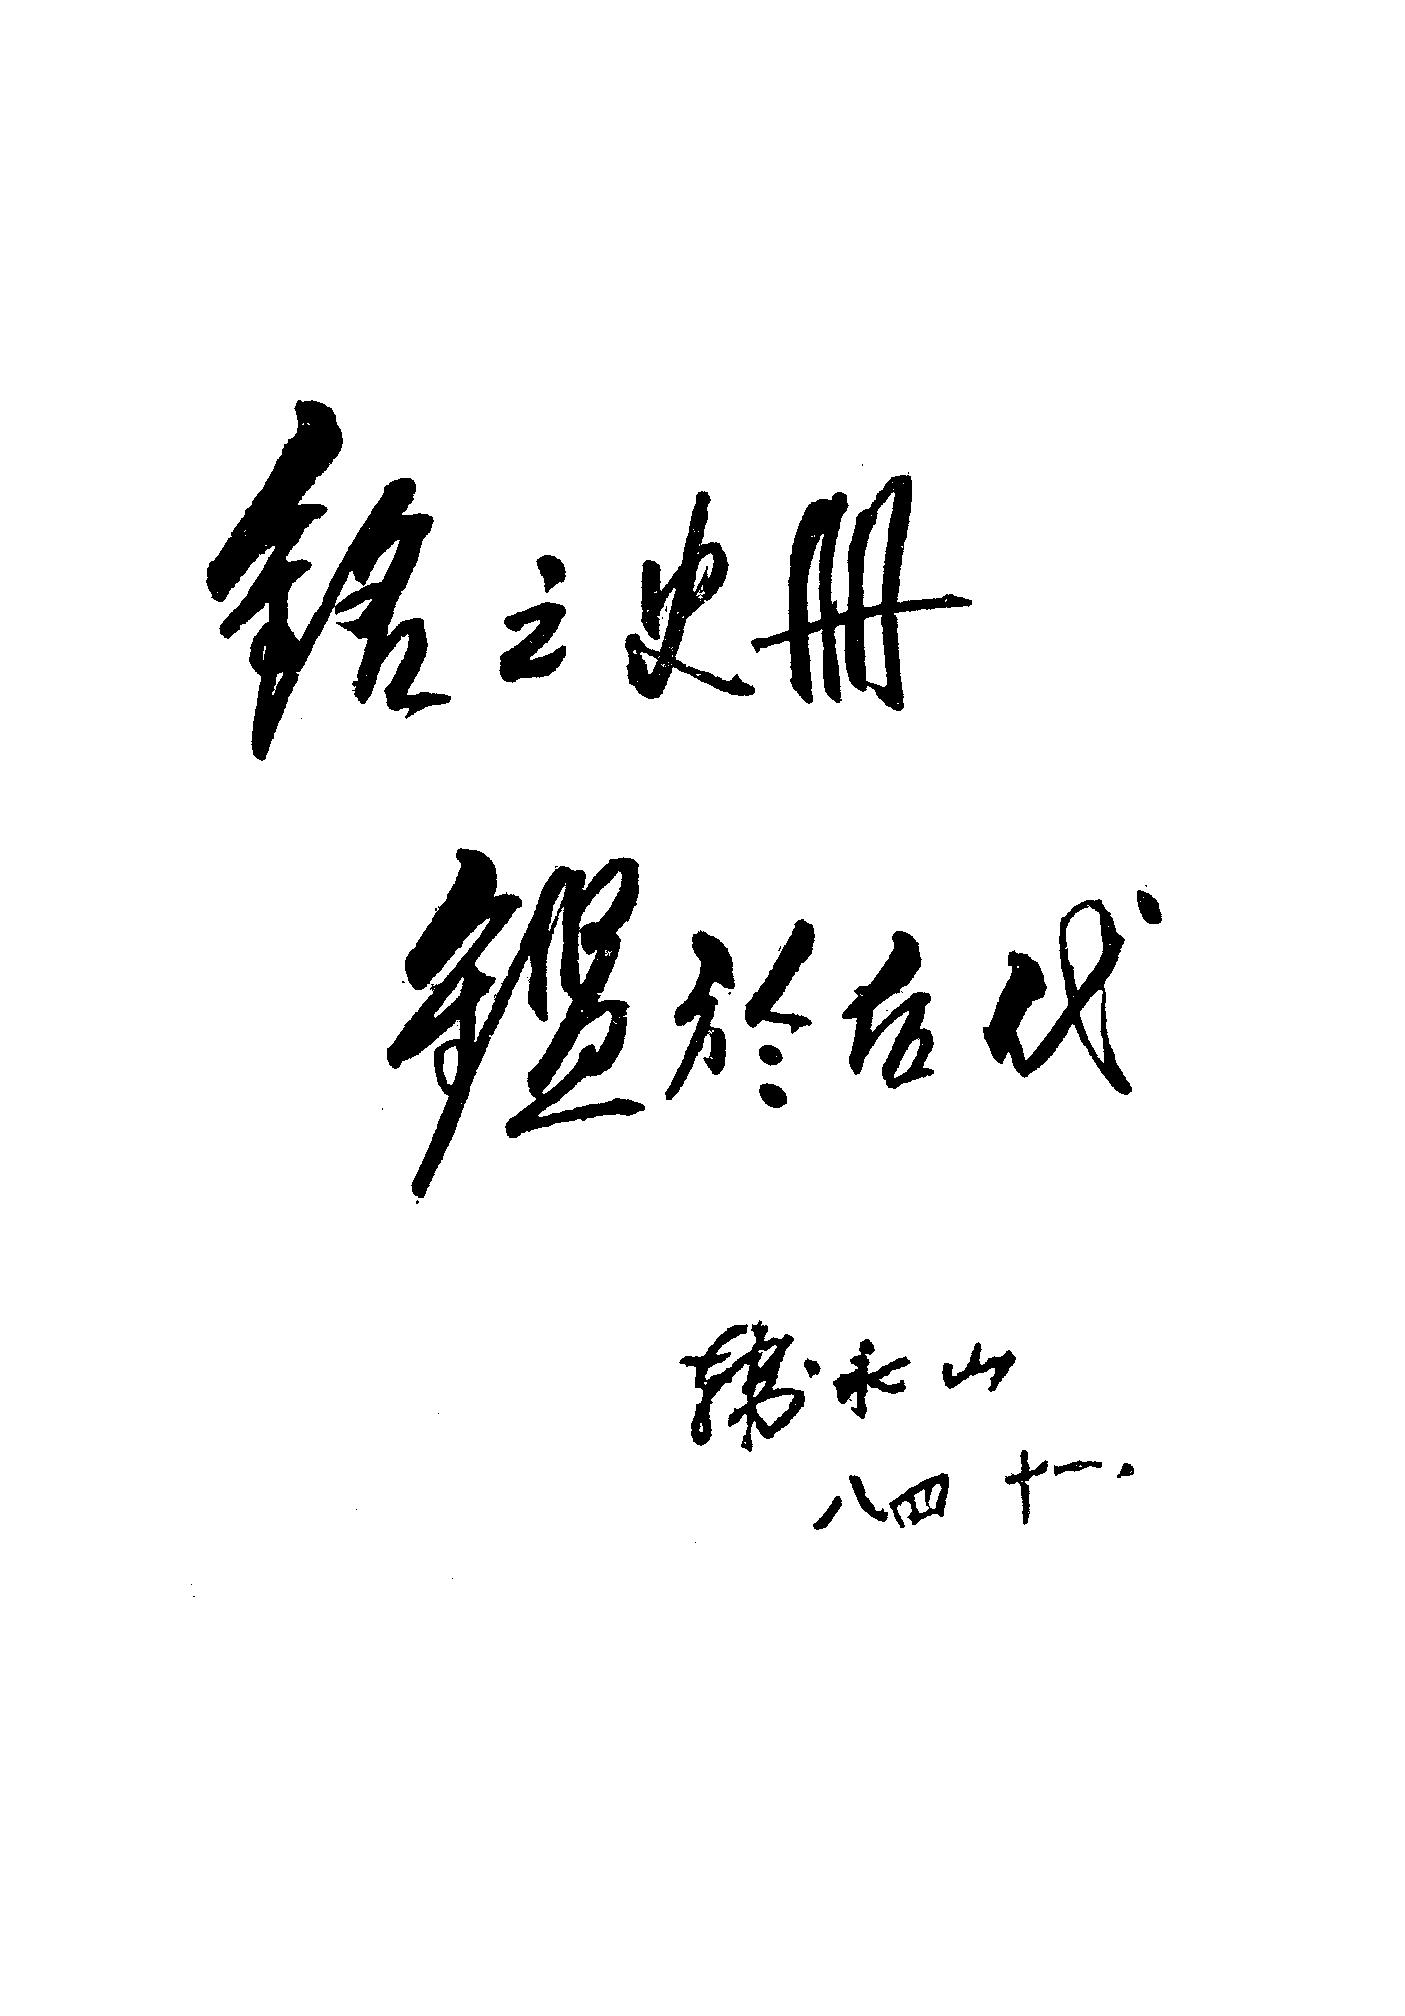 銘之史册
鑑於后代
永山
八四 十一.